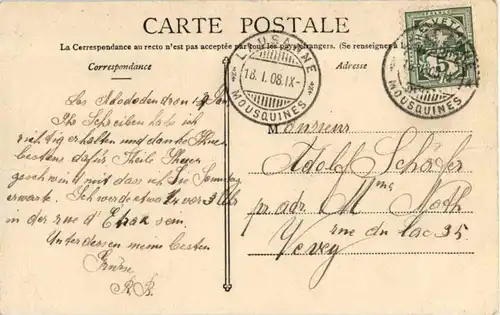 CARTE POSTALE
La Correspondance au recto n'est pas acceptée par tous les pays étrangers. (Se renseigner à
Correspondance
Adresse
LAUSANNE
18.I.08.IX-
MOUSQUINES
HELVETIA
5
MOUSQUINES
Ihr Schreiben habe ich
richtig erhalten und danke Ihnen
bestens dafür Theile Ihnen
geschwind mit dass ich Sie Sonntag
erwarte. Ich werde etwa 2 oder 3 Uhr
in der rue d'Etraz sein.
Unterdessen meine besten
Grüsse
Monsieur
Adolf Schäfer
pr. adr. Mme Noth
rue du Lac 35
Vevey